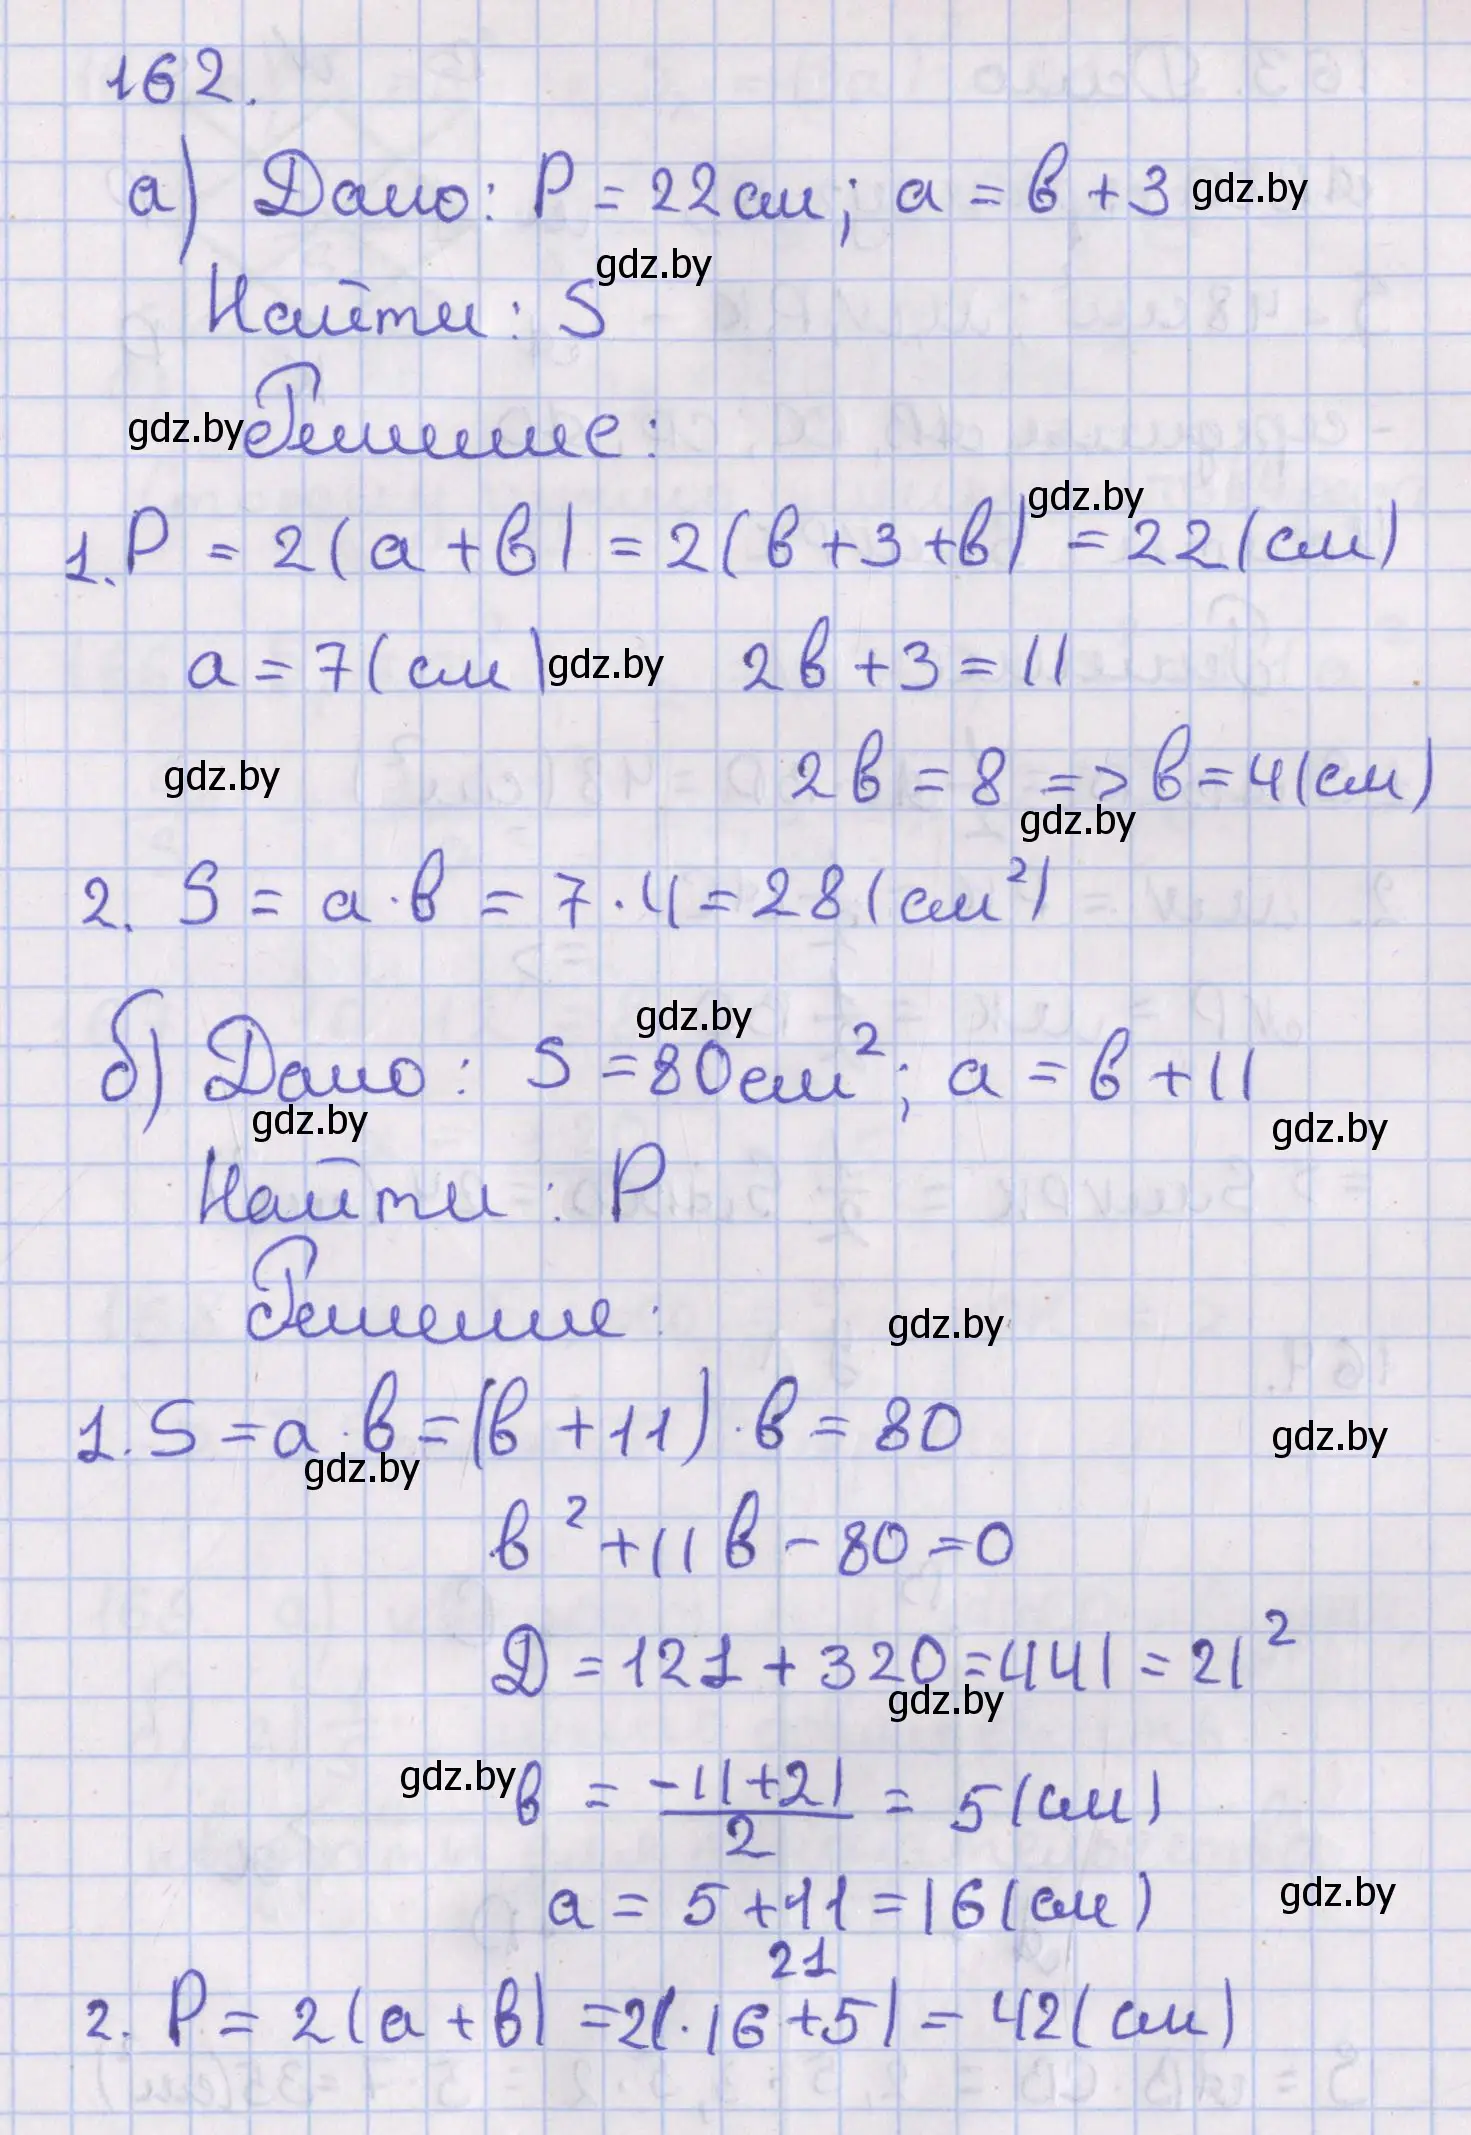 162.
а) Дано: P = 22 см; a = b + 3 gdz.by
gdz.by
Найти: S
gdz.by Решение:
gdz.by
1. P = 2(a + b) = 2(b + 3 + b) = 22 (см)
a = 7 (см) gdz.by 2b + 3 = 11
gdz.by 2b = 8 => b = 4 (см)
gdz.by
2. S = a · b = 7 · 4 = 28 (см²)
gdz.by
б) Дано: S = 80 см²; a = b + 11
gdz.by gdz.by
Найти: P
Решение:
gdz.by
1. S = a · b = (b + 11) · b = 80
gdz.by gdz.by
b² + 11b - 80 = 0
D = 121 + 320 = 441 = 21²
gdz.by
gdz.by b = \frac{-11 + 21}{2} = 5 (см)
a = 5 + 11 = 16 (см) gdz.by
21
2. P = 2(a + b) = 2(· 16 + 5) = 42 (см)